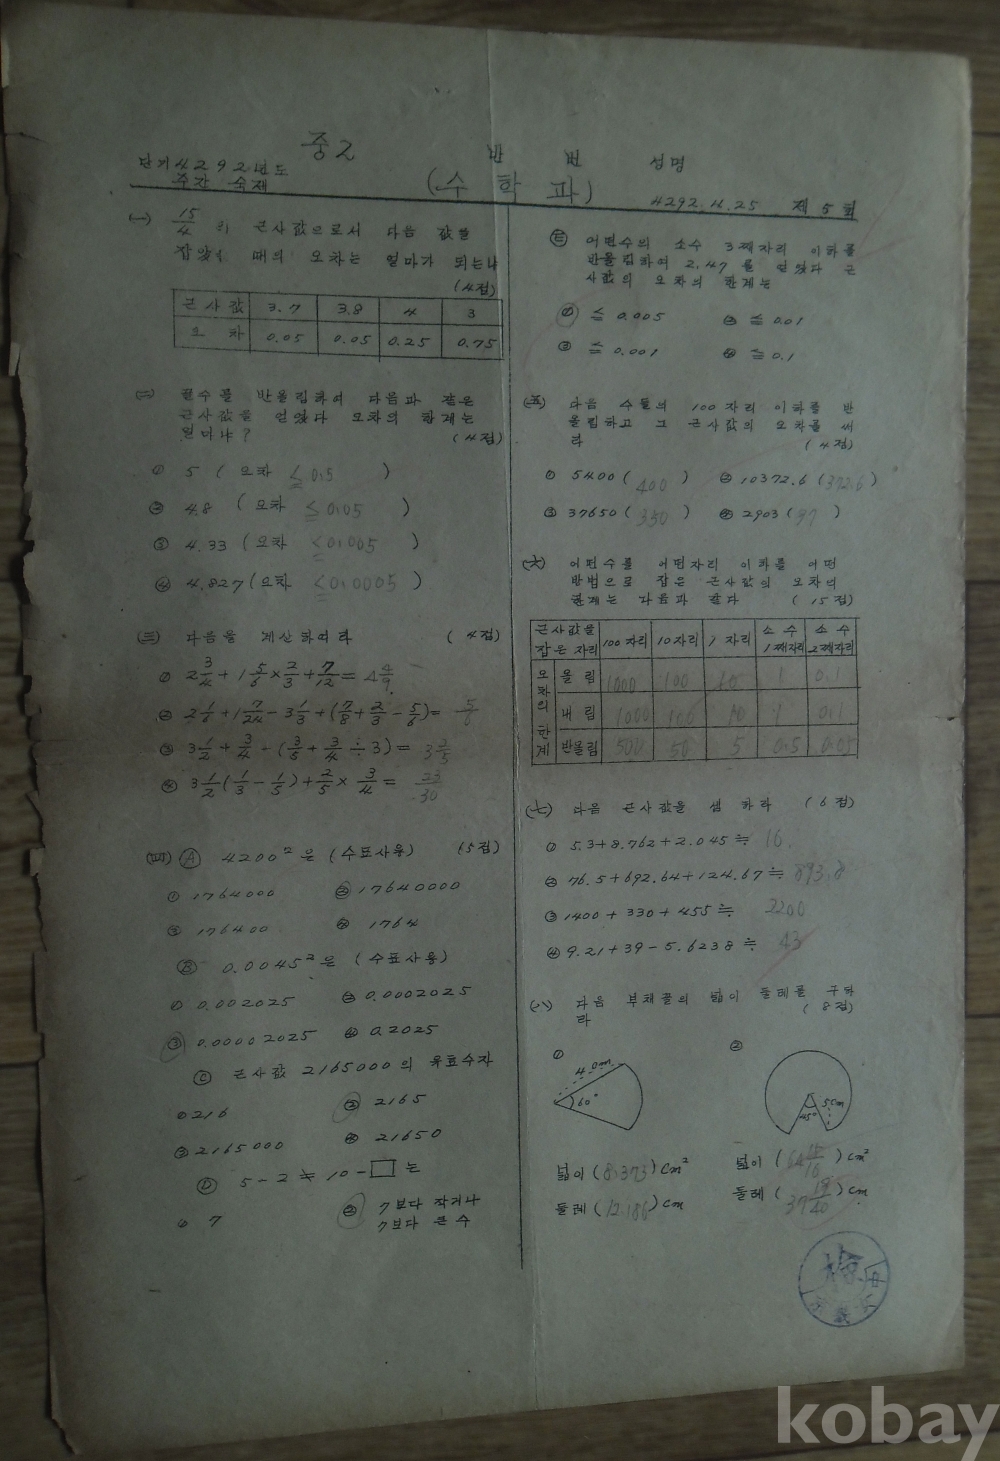 중2
반 번 성명
단기4292년도
주간 숙제
(수학과)
4292.4.25 제5회
(一) 15/4 의 근사값으로서 다음 값을
잡았을 때의 오차는 얼마가 되는냐
(4점)
근사값 3.7 3.8 4 3
오차 0.05 0.05 0.25 0.75
(二) 길수를 반올림하여 다음과 같은
근사값을 얻었다 오차의 한계는
얼마냐? (4점)
① 5 (오차 ≦0.5 )
② 4.8 (오차 ≦0.05 )
③ 4.33 (오차 ≦0.005 )
④ 4.827 (오차 ≦0.0005 )
(三) 다음을 계산하여라 (4점)
① 2 3/4 + 1 5/6 × 2/3 + 7/12 = 4 4/9
② 2 1/6 + 1 7/24 - 3 1/3 + (7/8 + 2/3 - 5/6) = 5/6
③ 3 1/2 + 3/4 - (3/5 + 3/4 ÷ 3) =
④ 3 1/2 (1/3 - 1/5) + 2/5 × 3/4 = 23/30
(四) Ⓐ 4200² 은 (수표사용) (5점)
① 1764000 ② 17640000
③ 176400 ④ 1764
Ⓑ 0.0045² 은 (수표사용)
① 0.002025 ② 0.0002025
③ 0.00002025 ④ 0.2025
Ⓒ 근사값 2165000의 유효수자
① 216 ② 2165
③ 2165000 ④ 21650
Ⓓ 5-2≒10-□는
① 7 ② 7보다 작거나
7보다 큰 수
Ⓔ 어떤수의 소수 3째자리 이하를
반올림하여 2.47을 얻었다 근
사값의 오차의 한계는
① ≦ 0.005 ② ≦ 0.01
③ ≦ 0.001 ④ ≦ 0.1
(五) 다음 수들의 100자리 이하를 반
올림하고 그 근사값의 오차를 써
라 (4점)
① 5400 (400) ② 10372.6 (372.6)
③ 37650 (350) ④ 2903 (97)
(六) 어떤수를 어떤자리 이하를 어떤
방법으로 잡은 근사값의 오차의
한계는 다음과 같다 (15점)
근사값을 잡은 자리 100자리 10자리 1자리 소수 1째자리 소수 2째자리
오차의 한계
올림 1000 100 10 1 0.1
내림 1000 100 10 1 0.1
반올림 500 50 5 0.5 0.05
(七) 다음 근사값을 셈하라 (6점)
① 5.3+8.762+2.045≒ 16.
② 76.5+692.64+124.67≒ 893.8
③ 1400+330+455≒ 2200
④ 9.21+39-5.6238≒ 43
(八) 다음 부채꼴의 넓이 둘레를 구하
라 (8점)
① ②
4.0cm
60°
5cm
45°
넓이 (8.373) cm² 넓이 (64 15/16) cm²
둘레 (12.186) cm 둘레 (37 19/40) cm
檢
kobay